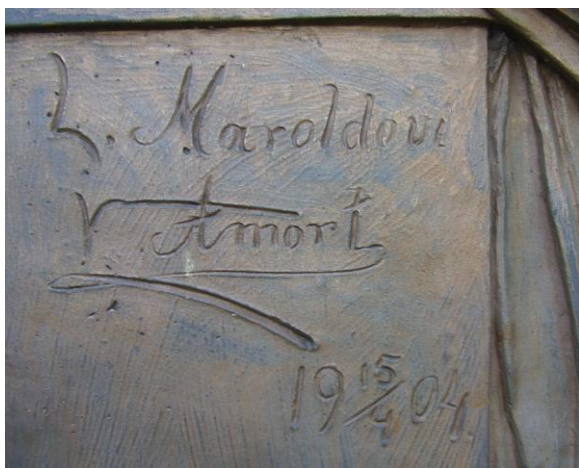 L. Maroldovi
V Amort
19 15/4 04.